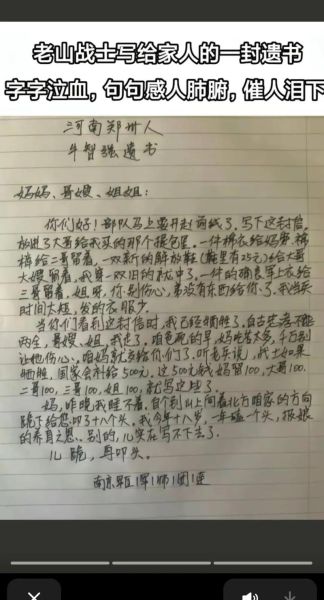 老山战士写给家人的一封遗书
字字泣血，句句感人肺腑，催人泪下
河南郑州人
牛智强遗书
妈妈、哥嫂、姐姐：
你们好！部队马上要开赴前线了，写下这封信，
放进了大哥给我买的那个提包里。一件棉衣给妈穿，棉
裤给二哥留着，一双新的解放鞋（鞋里有25元）给大哥
大嫂留着，我穿一双旧的就中了。一件的确良军上衣给
三哥留着，姐呀，你别伤心，弟没有东西给你了，我当兵
时间太短，发的衣服少。
当你们看到这封信时，我已经牺牲了。自古忠孝不能
两全，哥嫂、姐，我走了，咱爸死的早，妈吃苦太多，千万别
让她伤心。咱妈就交给你们了。听老乡说，战士如果
牺牲，国家会补给500元，这500元钱妈留100，大哥100，
二哥100，三哥100，姐100，就写这些了。
妈，昨晚我睡不着，自个到山上向着北方咱家的方向
跪下给您叩了十八个头。我今年十八岁，一年磕一个头，报娘
的养育之恩。别的，儿实在写不下去了。
儿跪，再叩头。
南京军区1军1师1团1连